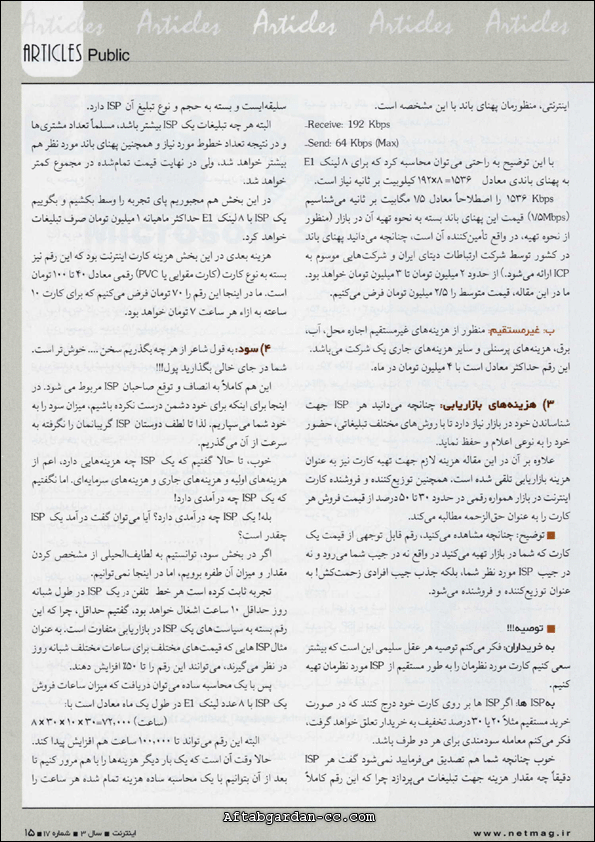 Articles Articles Articles Articles Articles
ARTICLES Public
اینترنتی، منظورمان پهنای باند با این مشخصه است.
-Receive: 192 Kbps
-Send: 64 Kbps (Max)
با این توضیح به راحتی می‌توان محاسبه کرد که برای ۸ لینک E1
به پهنای باندی معادل ۱۵۳۶=۸×۱۹۲ کیلوبیت بر ثانیه نیاز است.
۱۵۳۶ Kbps را اصطلاحاً معادل ۱/۵ مگابیت بر ثانیه می‌شناسیم
(۱/۵Mbps) قیمت این پهنای باند بسته به نحوه تهیه آن در بازار (منظور
از نحوه تهیه، در واقع تأمین‌کننده آن است، چنانچه می‌دانید پهنای باند
در کشور توسط شرکت ارتباطات دیتای ایران و شرکت‌هایی موسوم به
ICP ارائه می‌شود.) از حدود ۲ میلیون تومان تا ۳ میلیون تومان خواهد بود.
ما در این مقاله، قیمت متوسط را ۲/۵ میلیون تومان فرض می‌کنیم.
ب: غیرمستقیم: منظور از هزینه‌های غیرمستقیم اجاره محل، آب،
برق، هزینه‌های پرسنلی و سایر هزینه‌های جاری یک شرکت می‌باشد.
این رقم حداکثر معادل است با ۴ میلیون تومان در ماه.
۳) هزینه‌های بازاریابی: چنانچه می‌دانید هر ISP جهت
شناساندن خود در بازار نیاز دارد تا با روش‌های مختلف تبلیغاتی، حضور
خود را به نوعی اعلام و حفظ نماید.
علاوه بر آن در این مقاله هزینه لازم جهت تهیه کارت نیز به عنوان
هزینه بازاریابی تلقی شده است. همچنین توزیع‌کننده و فروشنده کارت
اینترنت در بازار همواره رقمی در حدود ۳۰ تا ۵۰ درصد از قیمت فروش هر
کارت را به عنوان حق‌الزحمه مطالبه می‌کند.
■ توضیح: چنانچه مشاهده می‌کنید، رقم قابل توجهی از قیمت یک
کارت که شما در بازار تهیه می‌کنید در واقع نه در جیب شما می‌رود و نه
در جیب ISP مورد نظر شما، بلکه جذب جیب افرادی زحمت‌کش! به
عنوان توزیع‌کننده و فروشنده می‌شود.
■ توصیه!!!
به خریداران: فکر می‌کنم توصیه هر عقل سلیمی این است که بیشتر
سعی کنیم کارت مورد نظرمان را به طور مستقیم از ISP مورد نظرمان تهیه
کنیم.
به ISP ها: اگر ISP ها بر روی کارت خود درج کنند که در صورت
خرید مستقیم مثلاً ۲۰ یا ۳۰ درصد تخفیف به خریدار تعلق خواهد گرفت،
فکر می‌کنم معامله سودمندی برای هر دو طرف باشد.
خوب چنانچه شما هم تصدیق می‌فرمایید نمی‌شود گفت هر ISP
دقیقاً چه مقدار هزینه جهت تبلیغات می‌پردازد چرا که این رقم کاملاً
سلیقه‌ایست و بسته به حجم و نوع تبلیغ آن ISP دارد.
البته هر چه تبلیغات یک ISP بیشتر باشد، مسلماً تعداد مشتری‌ها
و در نتیجه تعداد خطوط مورد نیاز و همچنین پهنای باند مورد نظر هم
بیشتر خواهد شد، ولی در نهایت قیمت تمام‌شده در مجموع کمتر
خواهد شد.
در این بخش هم مجبوریم پای تجربه را وسط بکشیم و بگوییم
یک ISP با ۸ لینک E1 حداکثر ماهیانه ۱ میلیون تومان صرف تبلیغات
خواهد کرد.
هزینه بعدی در این بخش هزینه کارت اینترنت بود که این رقم نیز
بسته به نوع کارت (کارت مقوایی یا PVC) رقمی معادل ۴۰ تا ۱۰۰ تومان
است. ما در اینجا این رقم را ۷۰ تومان فرض می‌کنیم که برای کارت ۱۰
ساعته به ازاء هر ساعت ۷ تومان خواهد بود.
۴) سود: به قول شاعر از هر چه بگذریم سخن .... خوش‌تر است.
شما در جای خالی بگذارید پول!!!
این هم کاملاً به انصاف و توقع صاحبان ISP مربوط می شود. در
اینجا برای اینکه برای خود دشمن درست نکرده باشیم، میزان سود را به
خود شما می‌سپاریم. لذا تا لطف دوستان ISP گریبانمان را نگرفته به
سرعت از آن می‌گذریم.
خوب، تا حالا گفتیم که یک ISP چه هزینه‌هایی دارد، اعم از
هزینه‌های اولیه و هزینه‌های جاری و هزینه‌های سرمایه‌ای. اما نگفتیم
که یک ISP چه درآمدی دارد!
بله! یک ISP چه درآمدی دارد؟ آیا می‌توان گفت درآمد یک ISP
چقدر است؟
اگر در بخش سود، توانستیم به لطایف‌الحیلی از مشخص کردن
مقدار و میزان آن طفره برویم، اما در اینجا نمی‌توانیم.
تجربه ثابت کرده است هر خط تلفن در یک ISP در طول شبانه
روز حداقل ۱۰ ساعت اشغال خواهد بود، گفتیم حداقل، چرا که این
رقم بسته به سیاست‌های یک ISP در بازاریابی متفاوت است. به عنوان
مثال ISP هایی که قیمت‌های مختلف برای ساعات مختلف شبانه روز
در نظر می‌گیرند، می‌توانند این رقم را تا ۵۰٪ افزایش دهند.
پس با یک محاسبه ساده می‌توان دریافت که میزان ساعات فروش
یک ISP با ۸ عدد لینک E1 در طول یک ماه معادل است با:
(ساعت) ۸×۳۰×۱۰×۳۰=۷۲,۰۰۰
البته این رقم می‌تواند تا ۱۰۰,۰۰۰ ساعت هم افزایش پیدا کند.
حالا وقت آن است که یک بار دیگر هزینه‌ها را با هم مرور کنیم تا
بعد از آن بتوانیم با یک محاسبه ساده هزینه تمام شده هر ساعت را
www.netmag.ir
Aftabgardan-cc.com
اینترنت ■ سال ۳ ■ شماره ۱۷ ■ ۱۵